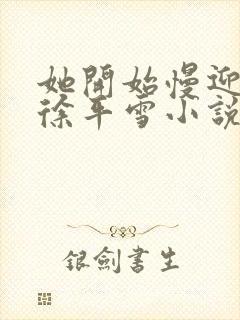 她開始慢迎
徐平雪小說
銀劍書生